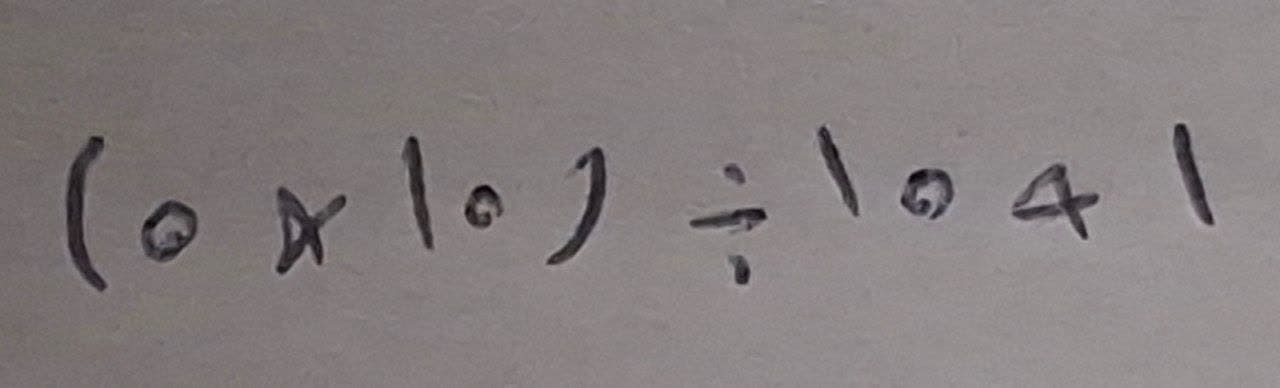 (0 × 10) ÷ 1041